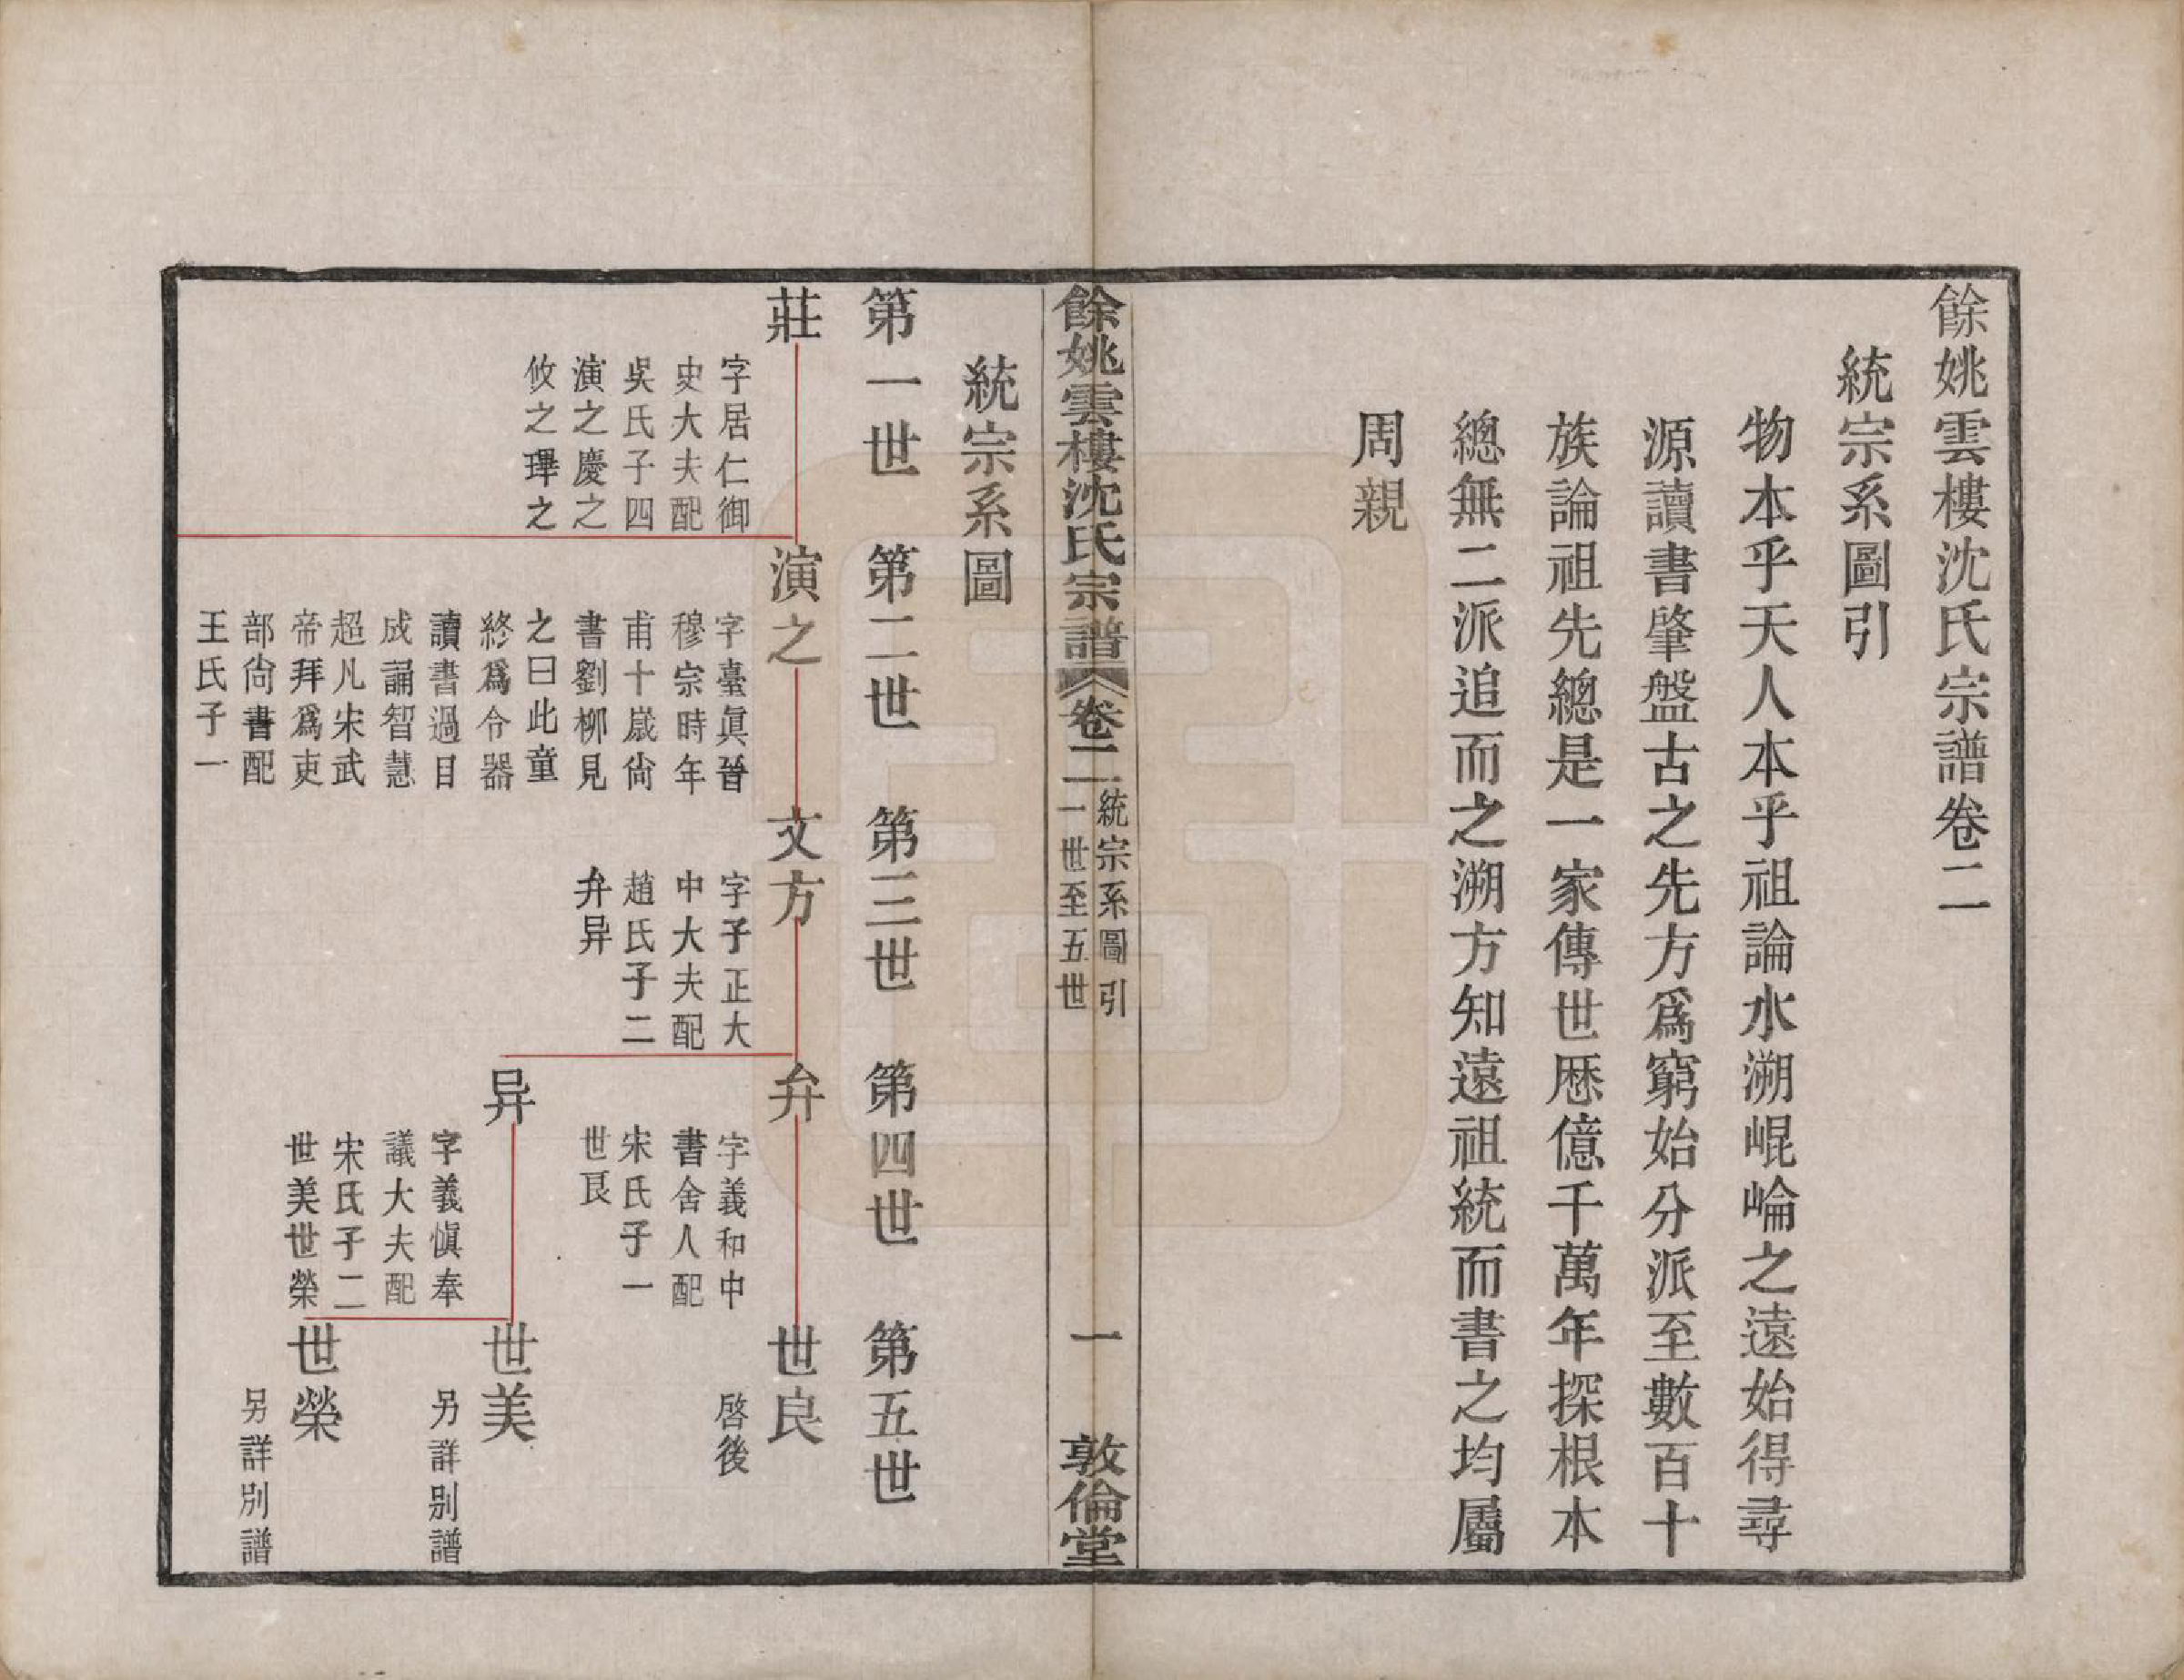 餘姚雲樓沈氏宗譜卷二
統宗系圖引
物本乎天人本乎祖論水溯崐崘之遠始得尋
源讀書肇盤古之先方爲窮始分派至數百十
族論祖先總是一家傳世歷億千萬年探根本
總無二派追而之溯方知遠祖統而書之均屬
周親
餘姚雲樓沈氏宗譜
卷二
統宗系圖引
一世至五世
一
敦倫堂
統宗系圖
第一世
第二世
第三世
第四世
第五世
莊
字居仁御
史大夫配
吳氏子四
演之慶之
攸之璍之
演之
字臺眞晉
穆宗時年
甫十歲尙
書劉柳見
之曰此童
終爲令器
讀書過目
成誦智慧
超凡宋武
帝拜爲吏
部尙書配
王氏子一
文方
字子正大
中大夫配
趙氏子二
弁异
弁
字義和中
書舍人配
宋氏子一
世良
世良
啓後
异
字義愼奉
議大夫配
宋氏子二
世美世榮
世美
另詳別譜
世榮
另詳別譜